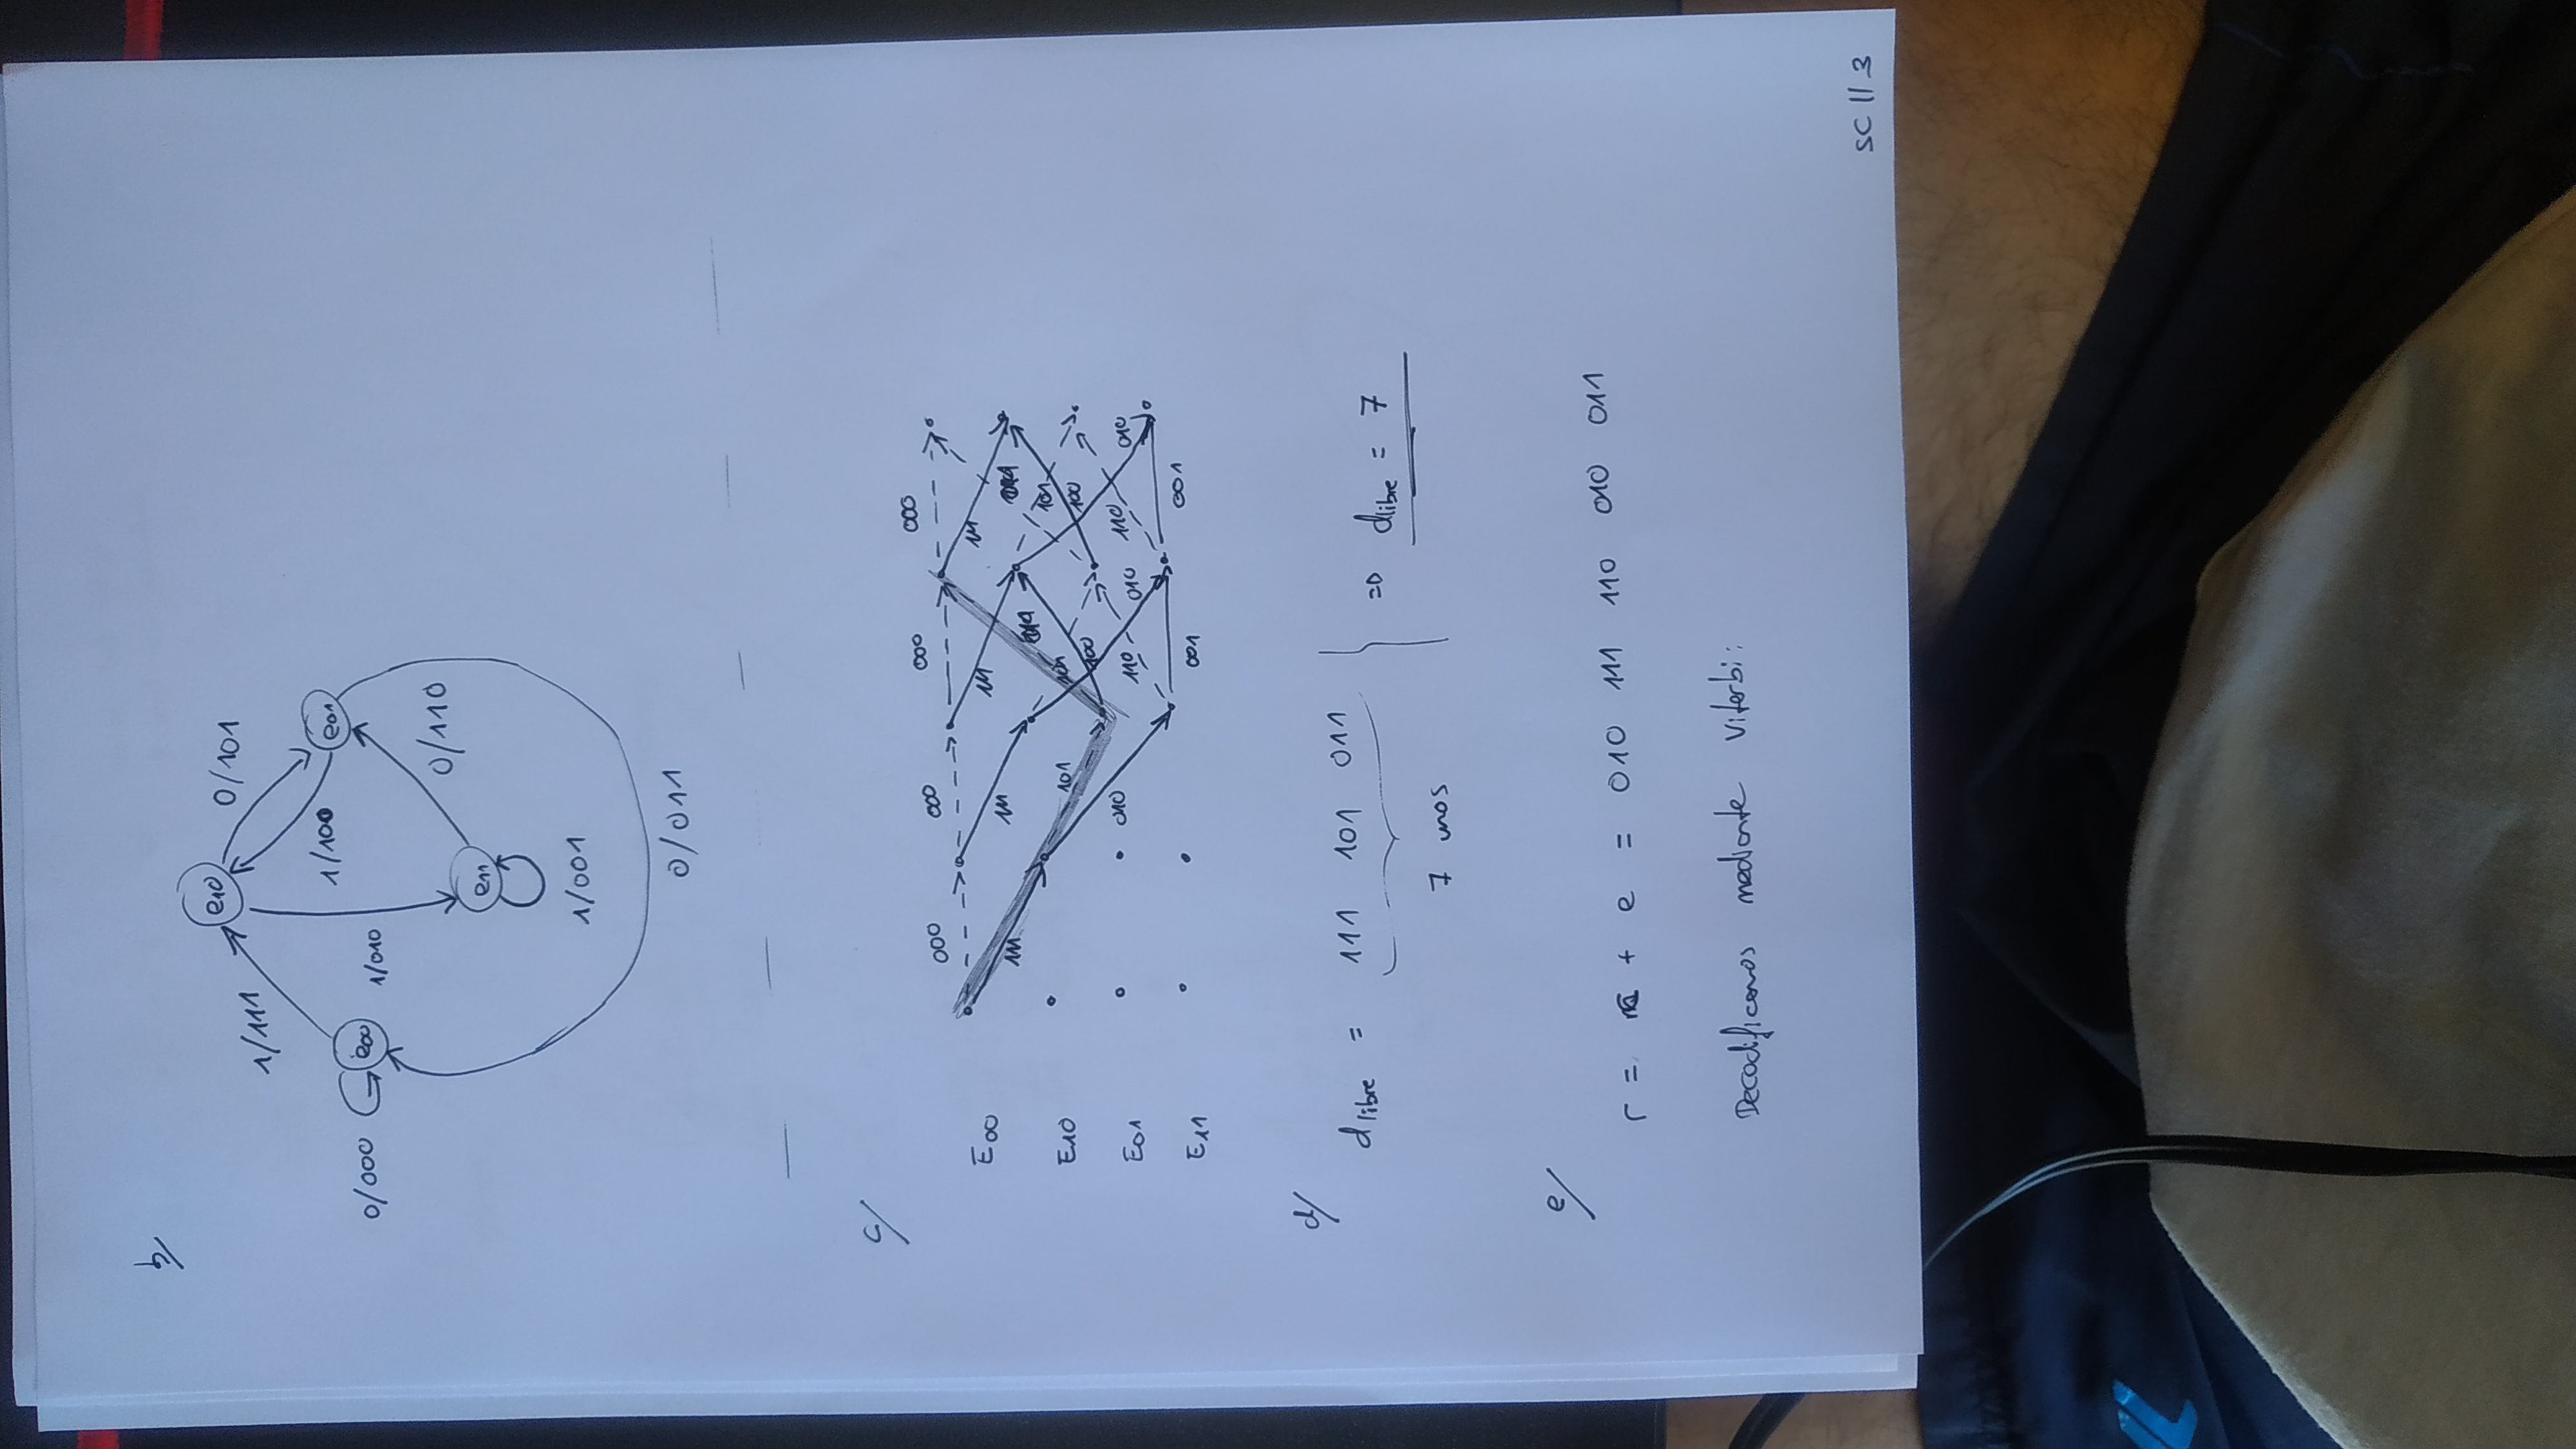 b/
e10
0/101
1/111
e01
1/100
e00
0/000
1/010
0/110
e11
1/001
0/011
c/
000 000 000 000
E00
111 111 111 111
E10
101 101
100 100
E01
010 110 010 110 010
E11
001 001
d/
dlibre = 111 101 011 => dlibre = 7
7 unos
e/
r = + e = 010 111 110 010 011
Decodificamos mediante Viterbi:
SC || 3